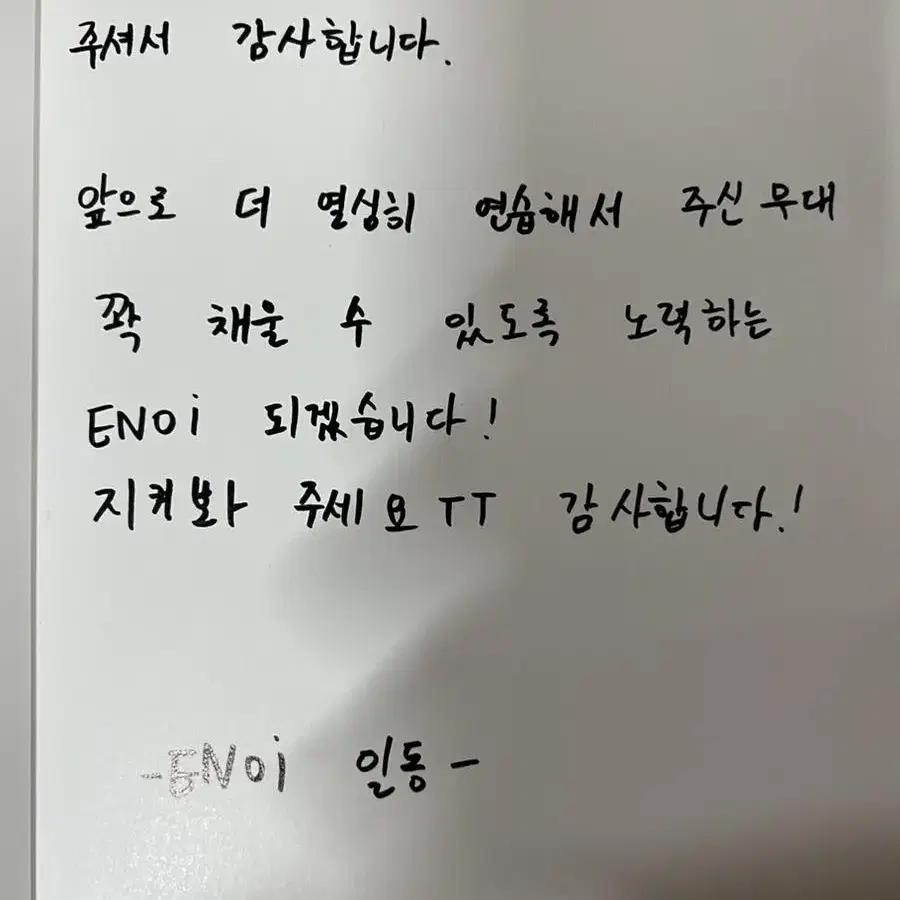 주셔서 감사합니다.
앞으로 더 열심히 연습해서 주신 무대
꽉 채울 수 있도록 노력하는
ENOi 되겠습니다!
지켜봐 주세요TT 감사합니다.!
-ENOi 일동-